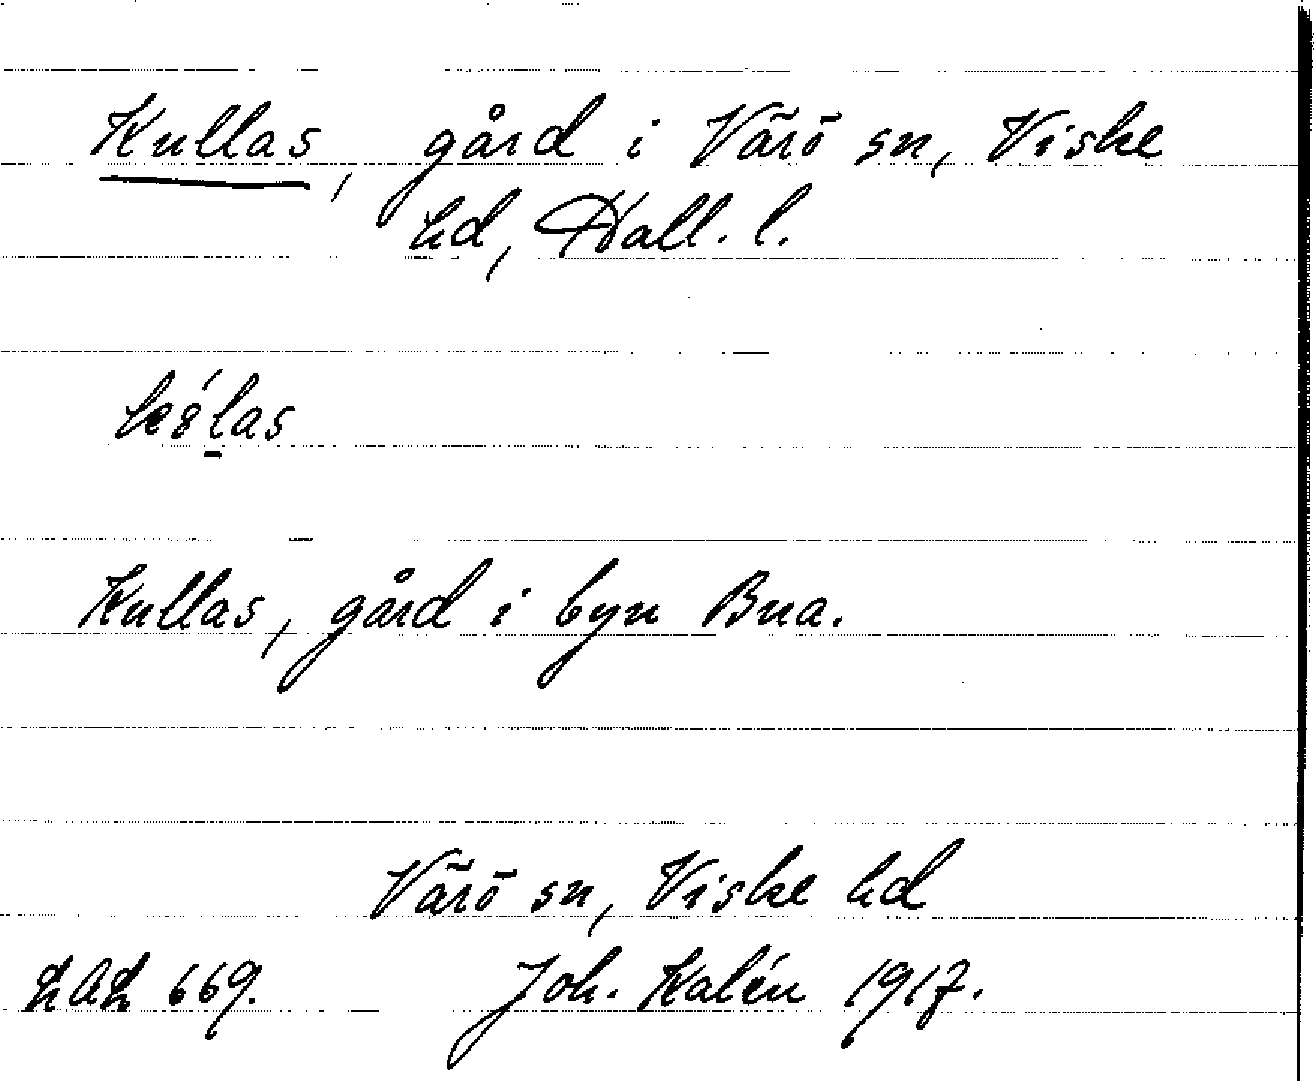 Kullas, gård i Värö sn, Viske
hd, Hall. l.
Kullas, gård i byn Bua.
Värö sn, Viske hd
LAL 669. Joh. Kalén 1917.